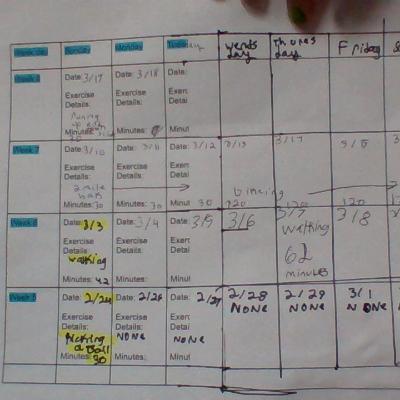 Week day Sunday Monday Tuesday Wends day Thures day Friday
Week 8 Date: 3/17 Date: 3/18 Date:
Exercise Exercise Exerc
Details: Details: Detai
Minutes: Minutes: Minut
Week 7 Date: 3/10 Date: 3/11 Date: 3/12 3/13 3/14
Exercise Exercise Exerc
Details: Details: Detai
2 mile
walk
Minutes: 30 Minutes: 30 Minut 30 120 120 120
Week 6 Date: 3/3 Date: 3/4 Date: 3/5 3/6 3/7 3/8
Exercise Exercise Exerc walking
Details: Details: Detai
walking 62
Minutes: 42 Minutes: Minut minutes
Week 5 Date: 2/24 Date: 2/26 Date: 2/27 2/28 2/29 3/1
NONE NONE NONE
Exercise Exercise Exerc
Details: Details: Detai
Kicking NONE NONE
a Ball
Minutes: 30 Minutes: Minut